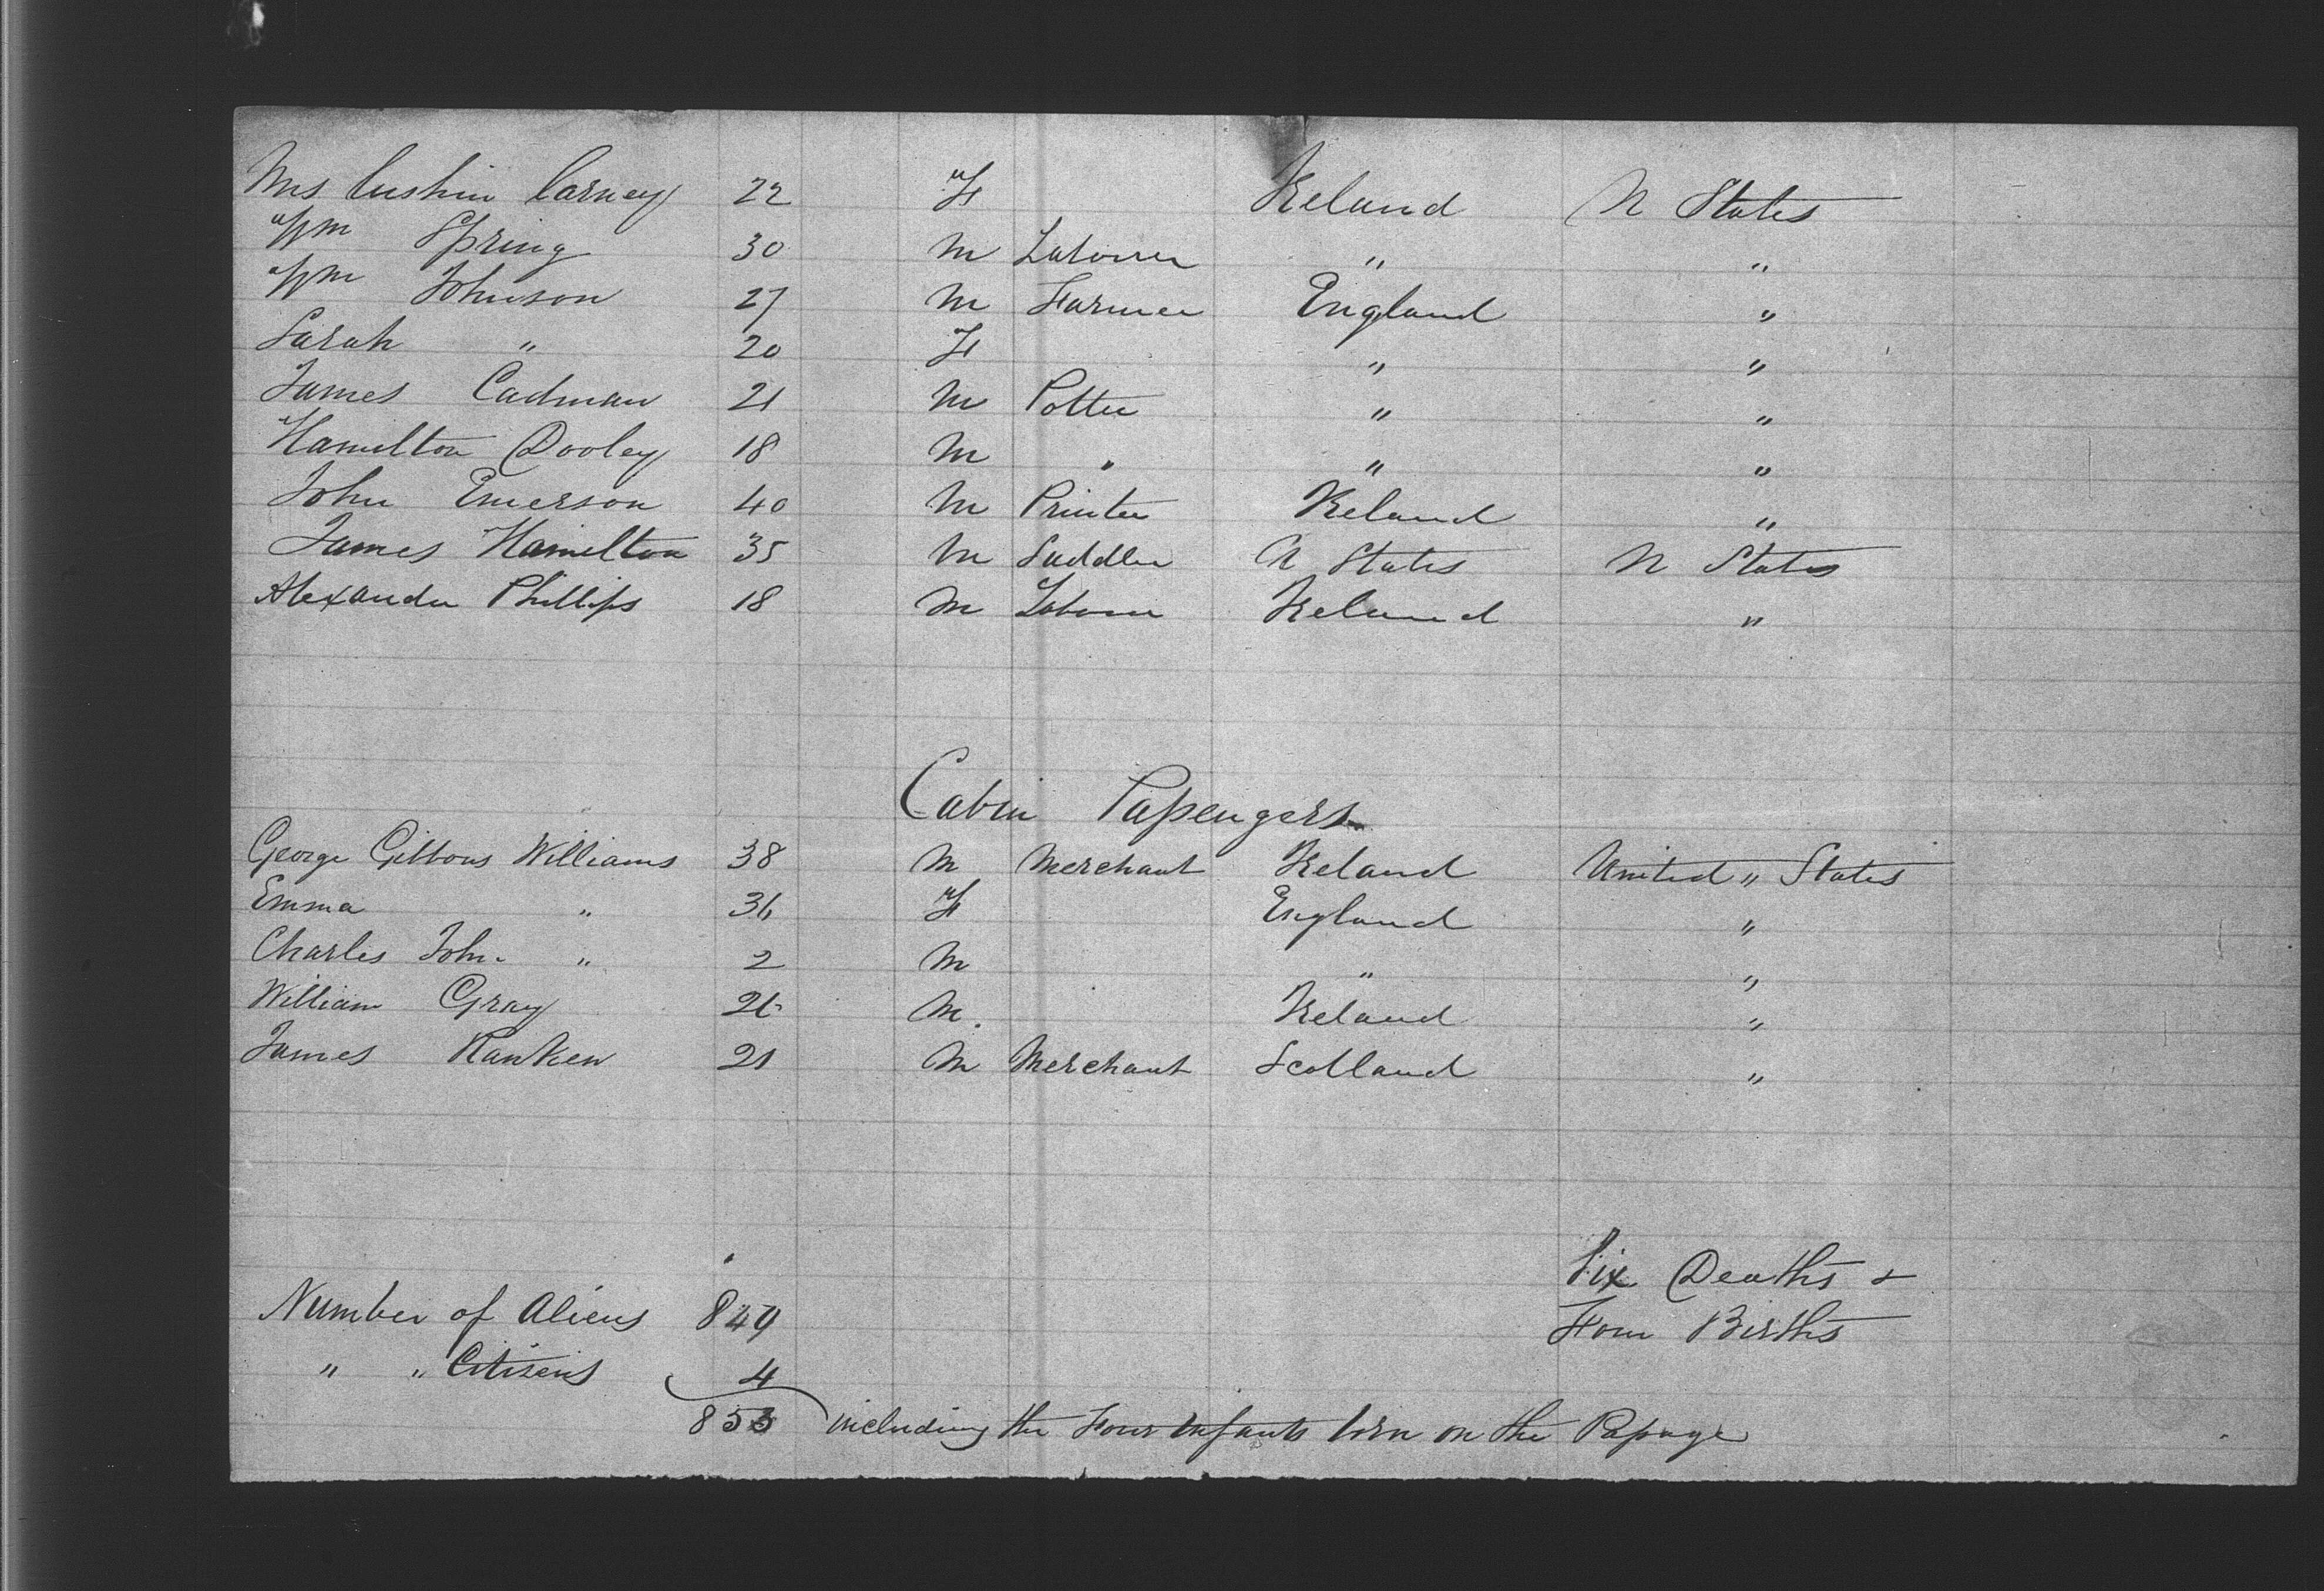 Mrs Cushin Carney 22 F Ireland U States
Wm Spring 30 M Laborer " "
Wm Johnson 27 M Farmer England "
Sarah " 20 F " "
James Cadman 21 M Potter " "
Hamilton Dooley 18 M " " "
John Emerson 40 M Printer Ireland "
James Hamilton 35 M Saddler U States U States
Alexander Phillips 18 M Laborer Ireland "
Cabin Passengers
George Gibbons Williams 38 M Merchant Ireland United " States
Emma " 36 F England "
Charles John " 2 M " "
William Gray M. Ireland "
James Ranken 21 M Merchant Scotland "
Six Deaths &
Number of Aliens 849 Four Births
" " Citizens 4
853 including the Four infants born on the Passage